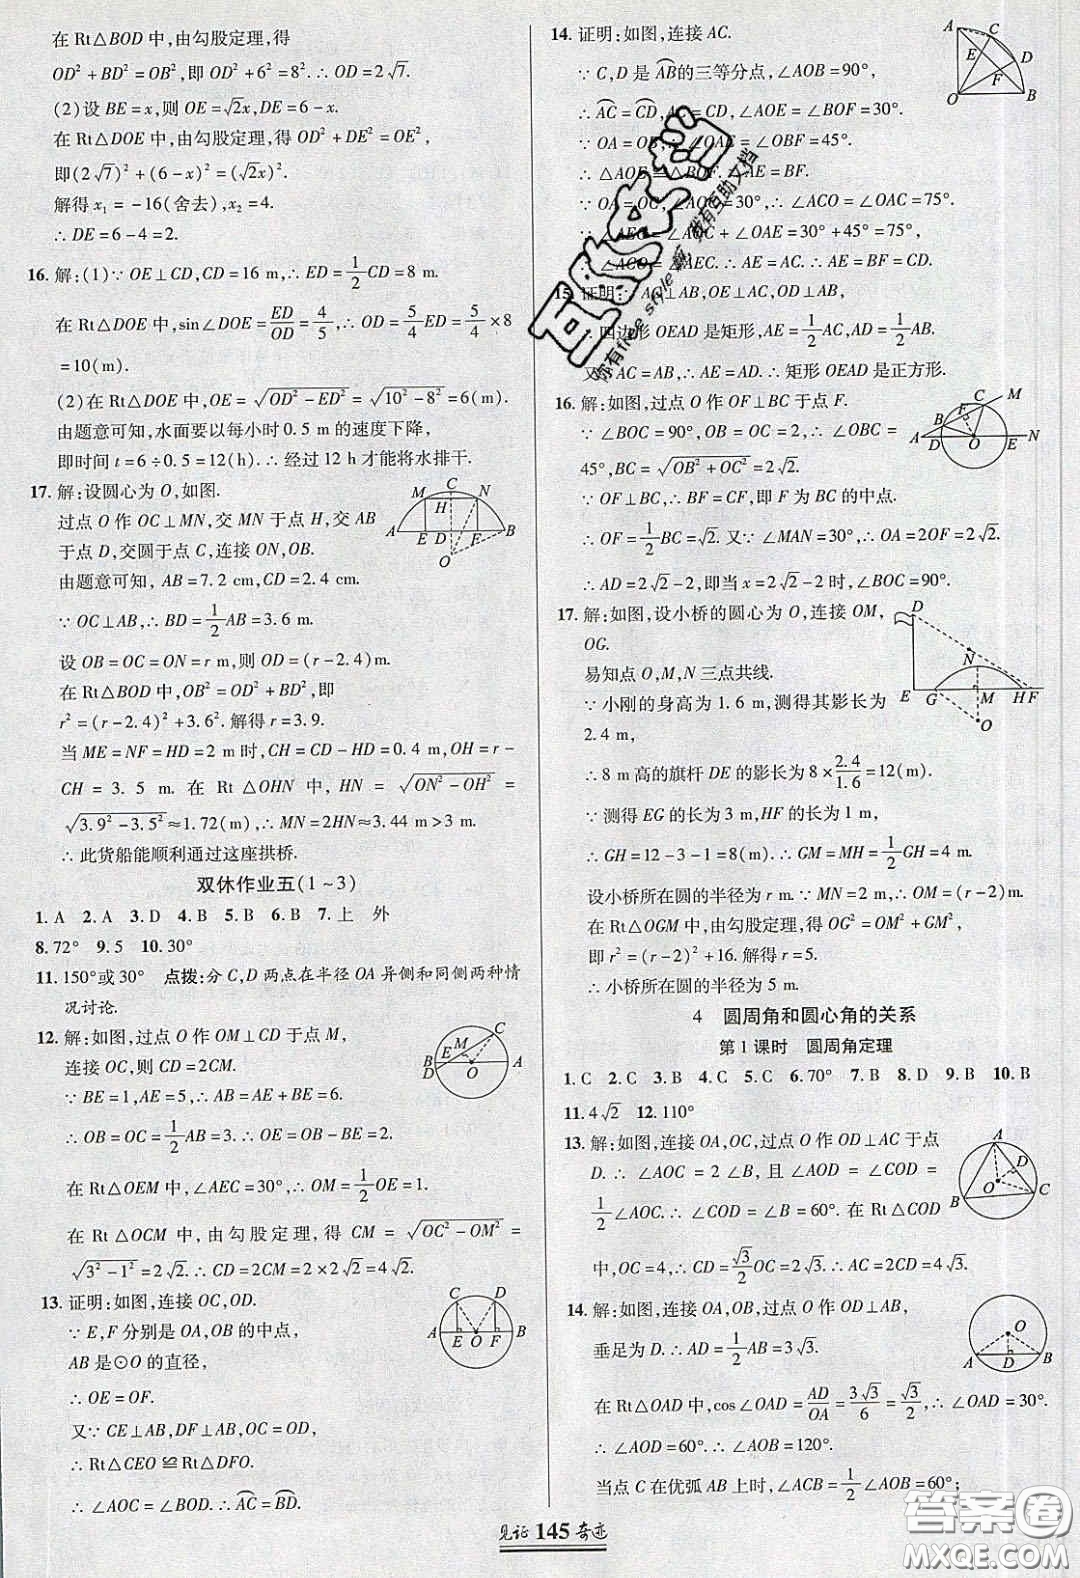 在 Rt△BOD 中,由勾股定理,得
OD²+BD²=OB²,即 OD²+6²=8².∴OD=2√7.
(2)设 BE=x,则 OE=√2x,DE=6-x.
在 Rt△DOE 中,由勾股定理,得 OD²+DE²=OE²,
即(2√7)²+(6-x)²=(√2x)².
解得 x₁=-16(舍去),x₂=4.
∴DE=6-4=2.
16. 解:(1)∵OE⊥CD,CD=16 m,∴ED=1/2CD=8 m.
在 Rt△DOE 中,sin∠DOE=ED/OD=4/5,∴OD=5/4ED=5/4×8
=10(m).
(2)在 Rt△DOE 中,OE=√(OD²-ED²)=√(10²-8²)=6(m).
由题意可知,水面要以每小时 0.5 m 的速度下降,
即时间 t=6÷0.5=12(h).∴经过 12 h 才能将水排干.
17. 解:设圆心为 O,如图.
过点 O 作 OC⊥MN,交 MN 于点 H,交 AB
于点 D,交圆于点 C,连接 ON,OB.
由题意可知,AB=7.2 cm,CD=2.4 cm.
∵OC⊥AB,∴BD=1/2AB=3.6 m.
设 OB=OC=ON=r m,则 OD=(r-2.4)m.
在 Rt△BOD 中,OB²=OD²+BD²,即
r²=(r-2.4)²+3.6².解得 r=3.9.
当 ME=NF=HD=2 m 时,CH=CD-HD=0.4 m,OH=r-
CH=3.5 m. 在 Rt△OHN 中,HN=√(ON²-OH²)=
√(3.9²-3.5²)≈1.72(m),∴MN=2HN≈3.44 m>3 m.
∴此货船能顺利通过这座拱桥.
双休作业五(1~3)
1. A 2. A 3. D 4. B 5. B 6. B 7. 上 外
8. 72° 9. 5 10. 30°
11. 150°或30° 点拨:分 C,D 两点在半径 OA 异侧和同侧两种情
况讨论.
12. 解:如图,过点 O 作 OM⊥CD 于点 M,
连接 OC,则 CD=2CM.
∵BE=1,AE=5,∴AB=AE+BE=6.
∴OB=OC=1/2AB=3.∴OE=OB-BE=2.
在 Rt△OEM 中,∠AEC=30°,∴OM=1/2OE=1.
在 Rt△OCM 中,由勾股定理,得 CM=√(OC²-OM²)=
√(3²-1²)=2√2.∴CD=2CM=2×2√2=4√2.
13. 证明:如图,连接 OC,OD.
∵E,F 分别是 OA,OB 的中点,
AB 是⊙O 的直径,
∴OE=OF.
又∵CE⊥AB,DF⊥AB,OC=OD,
∴Rt△CEO≌Rt△DFO.
∴∠AOC=∠BOD.∴A͡C=B͡D.
14. 证明:如图,连接 AC.
∵C,D 是A͡B的三等分点,∠AOB=90°,
∴A͡C=C͡D,∴AC=CD,∠AOE=∠BOF=30°.
∵OA=OB,∴∠OAE=∠OBF=45°.
∴△AOE≌△BOF.∴AE=BF.
∵OA=OC,∠AOE=30°,∴∠ACO=∠CAO=75°.
∵∠AEC=∠AOC+∠OAE=30°+45°=75°,
∴∠ACO=∠AEC.∴AC=AE.∴AE=BF=CD.
15. 证明:∵AC⊥AB,OE⊥AC,OD⊥AB,
∴四边形 OEAD 是矩形,AE=1/2AC,AD=1/2AB.
又∵AC=AB,∴AE=AD.∴矩形 OEAD 是正方形.
16. 解:如图,过点 O 作 OF⊥BC 于点 F.
∵∠BOC=90°,OB=OC=2,∴∠OBC=
45°,BC=√(OB²+OC²)=2√2.
∵OF⊥BC,∴BF=CF,即 F 为 BC 的中点.
∴OF=1/2BC=√2.又∵∠MAN=30°,∴OA=2OF=2√2.
∴AD=2√2-2,即当 x=2√2-2 时,∠BOC=90°.
17. 解:如图,设小桥的圆心为 O,连接 OM,
OG.
易知点 O,M,N 三点共线.
∵小刚的身高为 1.6 m,测得其影长为
2.4 m,
∴8 m 高的旗杆 DE 的影长为 8×2.4/1.6=12(m).
∵测得 EG 的长为 3 m,HF 的长为 1 m,
∴GH=12-3-1=8(m).∴GM=MH=1/2GH=4 m.
设小桥所在圆的半径为 r m,则 MN=2 m,OM=(r-2)m.
在 Rt△OGM 中,由勾股定理,得 OG²=OM²+GM²,
即 r²=(r-2)²+16.解得 r=5.
∴小桥所在圆的半径为 5 m.
4 圆周角和圆心角的关系
第 1 课时 圆周角定理
1. C 2. C 3. B 4. C 5. C 6. 70° 7. B 8. D 9. B 10. B
11. 4√2 12. 110°
13. 解:如图,连接 OA,OC,过点 O 作 OD⊥AC 于点
D.∴∠AOC=2∠B,且∠AOD=∠COD=
1/2∠AOC.∴∠COD=∠B=60°.在 Rt△COD
中,OC=4,∴CD=√3/2OC=2√3.∴AC=2CD=4√3.
14. 解:如图,连接 OA,OB,过点 O 作 OD⊥AB,
垂足为 D.∴AD=1/2AB=3√3.
在 Rt△OAD 中,cos∠OAD=AD/OA=3√3/6=√3/2,∴∠OAD=30°.
∴∠AOD=60°.∴∠AOB=120°.
当点 C 在优弧 AB 上时,∠ACB=1/2∠AOB=60°;
见证 145 奇迹
答案圈
MXQE.COM